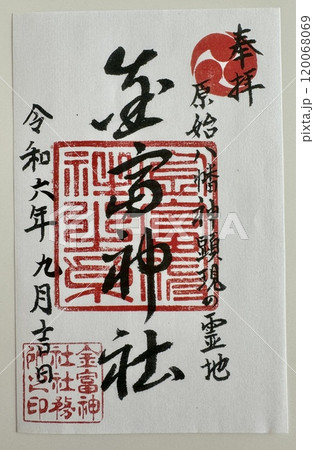 奉拝
原始八幡神顕現の霊地
金富神社
令和六年九月吉日
金富神
社社務
所之印
PIXTA
pixta.jp - 120068069